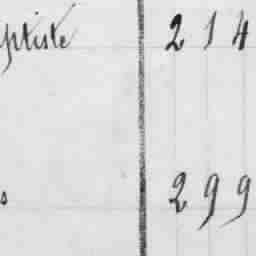 ptiste 214
s 299